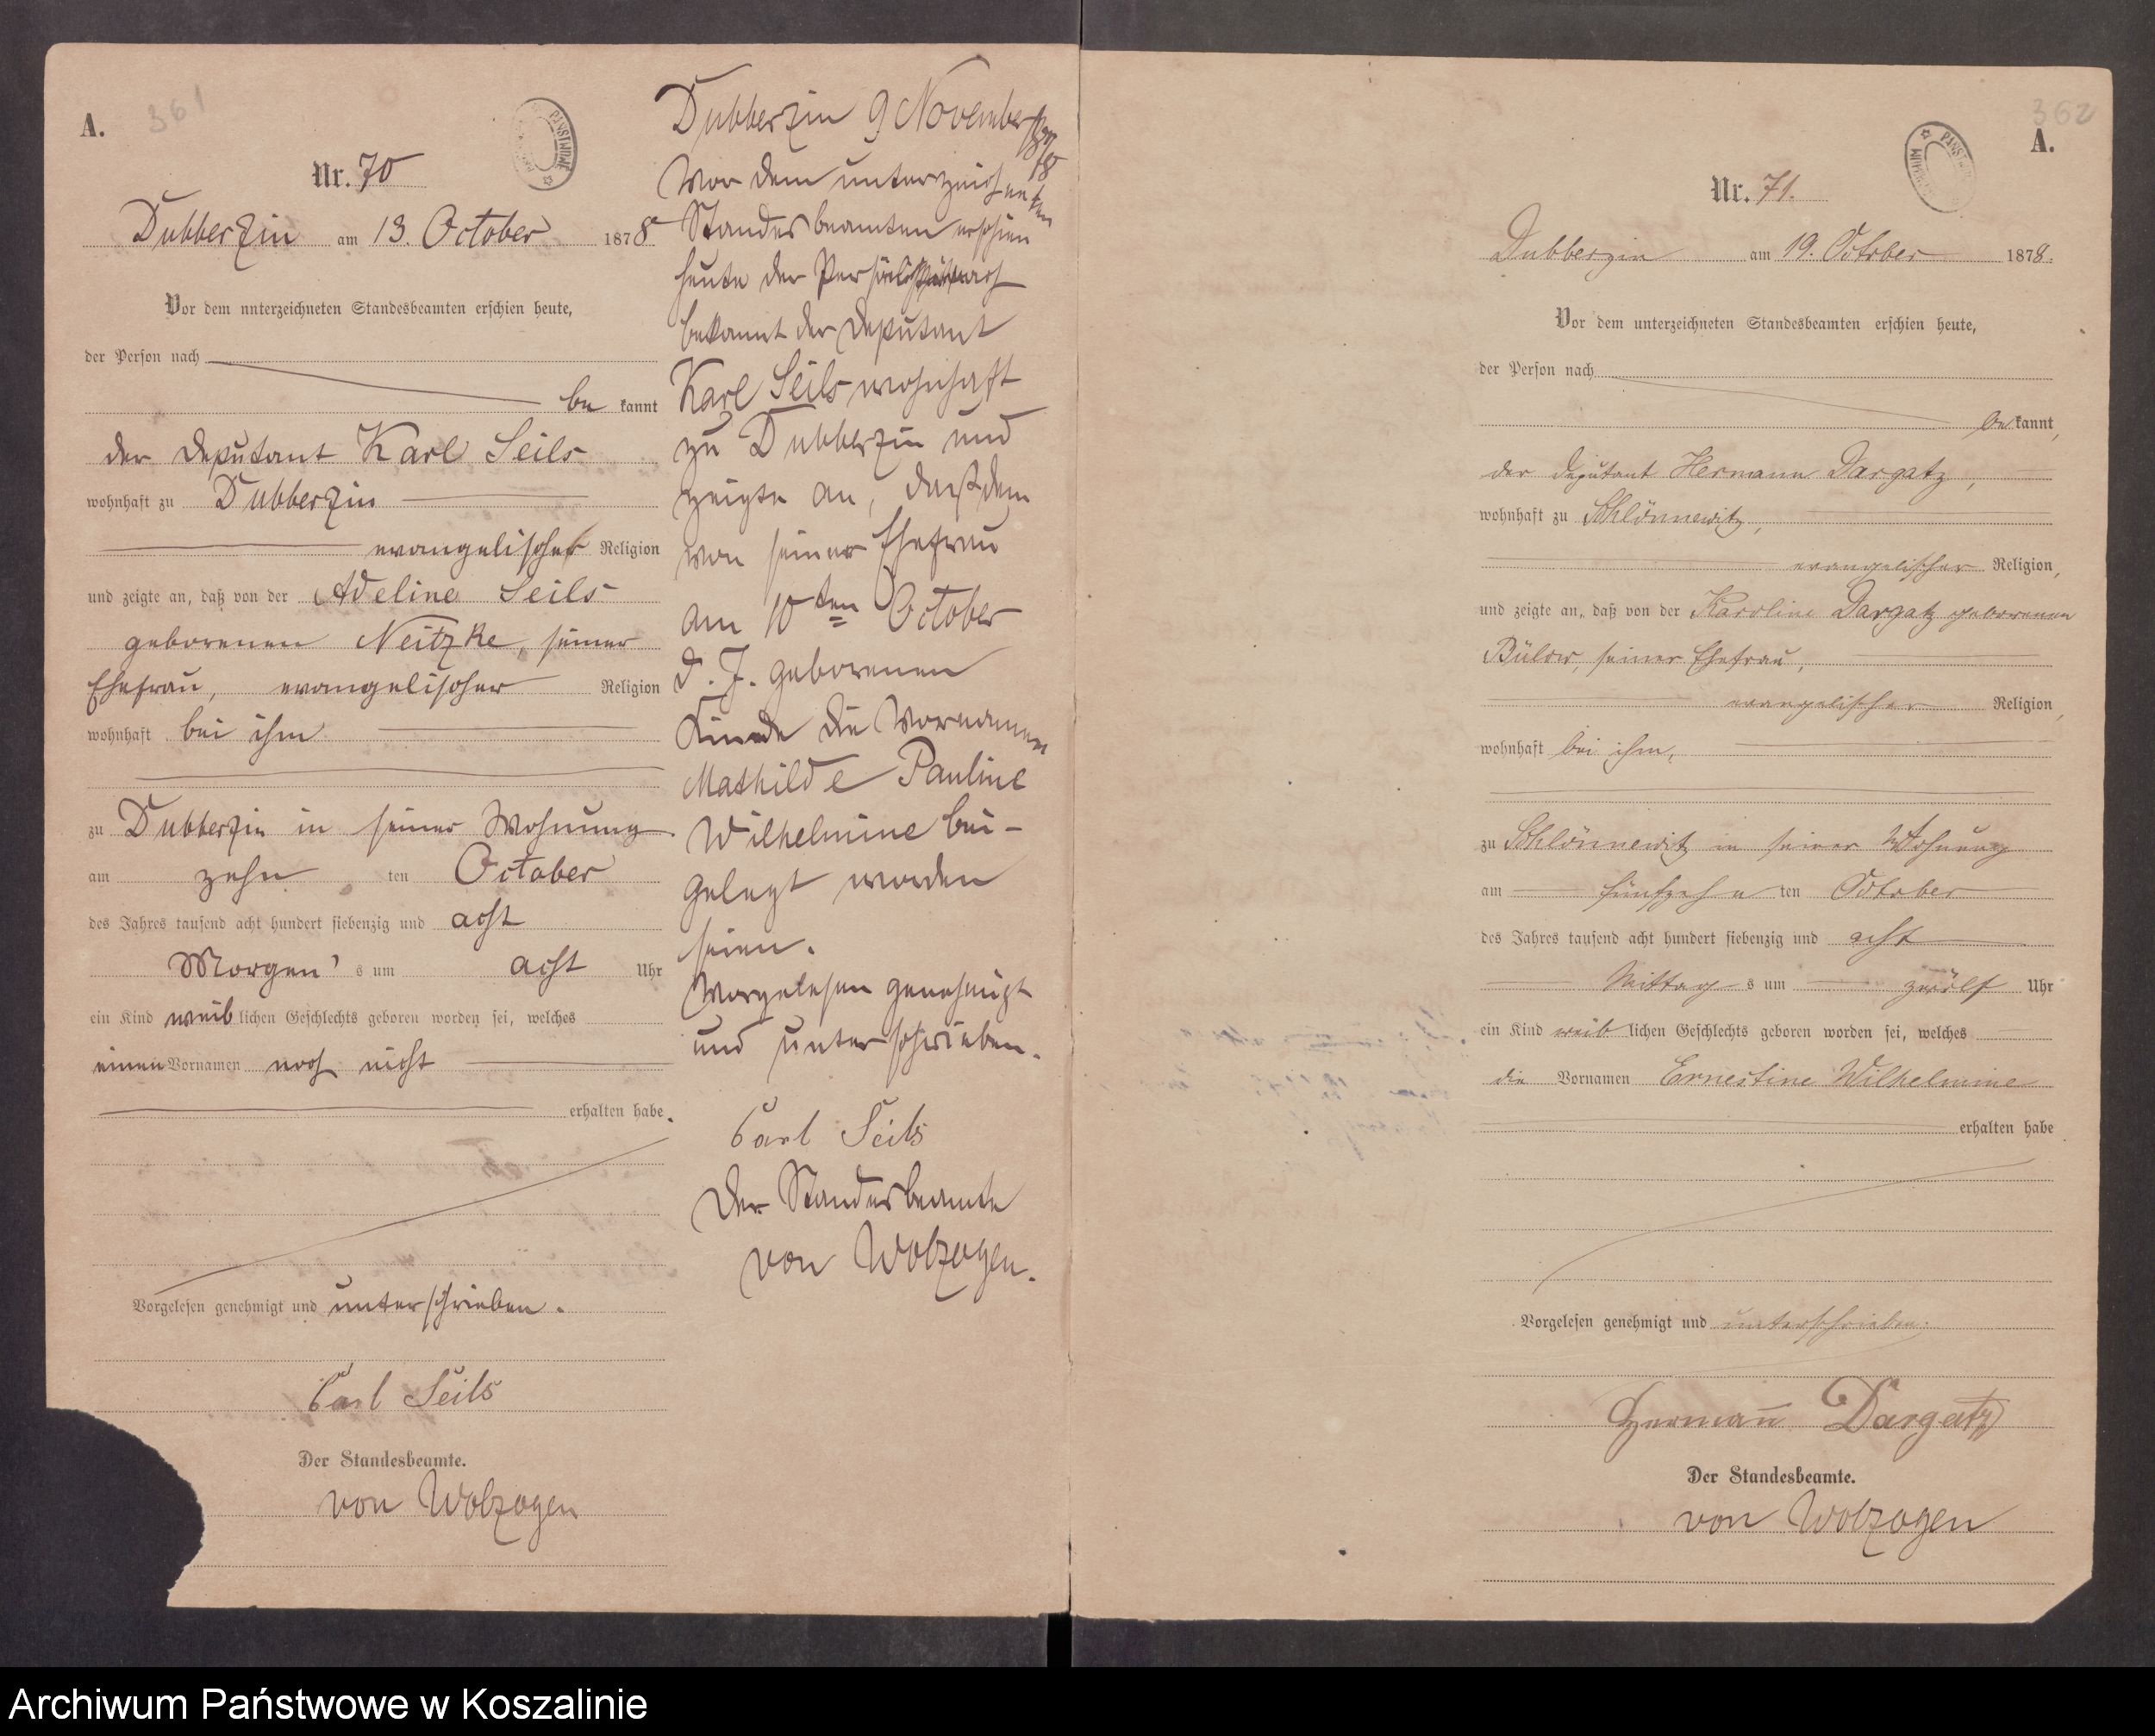 A.
361
Nr. 70
Dubberzin am 13. October 1878.
Vor dem unterzeichneten Standesbeamten erschien heute,
der Person nach
be kannt
der Deputant Karl Seils
wohnhaft zu Dubberzin
evangelischer Religion
und zeigte an, daß von der Adeline Seils
geborenen Neitzke, seiner
Ehefrau, evangelischer Religion
wohnhaft bei ihm
zu Dubberzin in seiner Wohnung
am zehn ten October
des Jahres tausend acht hundert siebenzig und acht
Morgen's um acht Uhr
ein Kind weiblichen Geschlechts geboren worden sei, welches
einen Vornamen noch nicht
erhalten habe.
Vorgelesen genehmigt und unterschrieben.
Carl Seils
Der Standesbeamte.
von Wolzogen
Dubberzin 9 November 1878
Vor dem unterzeichneten
Standesbeamten erschien
heute der Persönlichkeit nach
bekannt der Deputant
Karl Seils wohnhaft
zu Dubberzin und
zeigte an, daß dem
von seiner Ehefrau
am 10ten October
d. J. geborenen
Kinde die Vornamen
Mathilde Pauline
Wilhelmine bei-
gelegt worden
seien.
Vorgelesen genehmigt
und unterschrieben.
Carl Seils
Der Standesbeamte
von Wolzogen.
362
A.
PAŃST
Nr. 71.
Dubberzin am 19. October 1878.
Vor dem unterzeichneten Standesbeamten erschien heute,
der Person nach
be kannt,
der Deputant Hermann Dargatz,
wohnhaft zu Schlönnewitz,
evangelischer Religion,
und zeigte an, daß von der Karoline Dargatz geborenen
Bülow, seiner Ehefrau,
evangelischer Religion,
wohnhaft bei ihm,
zu Schlönnewitz in seiner Wohnung
am fünfzehn ten October
des Jahres tausend acht hundert siebenzig und acht
Mittags um zwölf Uhr
ein Kind weiblichen Geschlechts geboren worden sei, welches
die Vornamen Ernestine Wilhelmine
erhalten habe
Vorgelesen genehmigt und unterschrieben.
Hermann Dargatz
Der Standesbeamte.
von Wolzogen
Archiwum Państwowe w Koszalinie